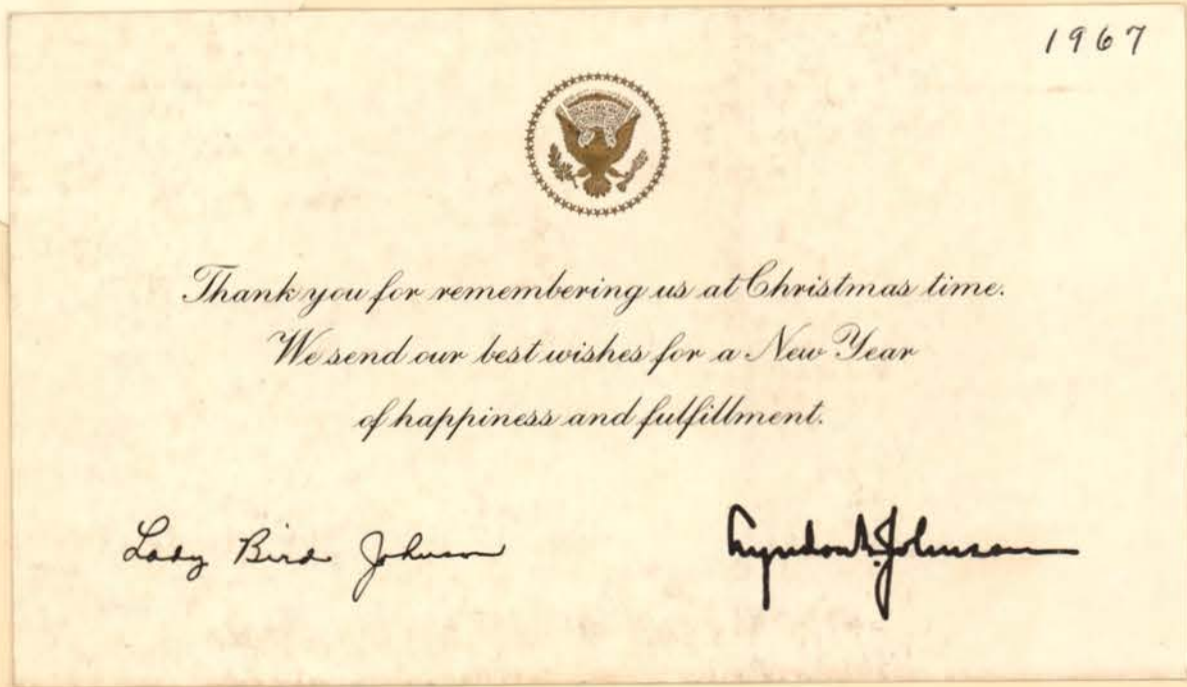 1967
Thank you for remembering us at Christmas time.
We send our best wishes for a New Year
of happiness and fulfillment.
Lady Bird Johnson
Lyndon B. Johnson